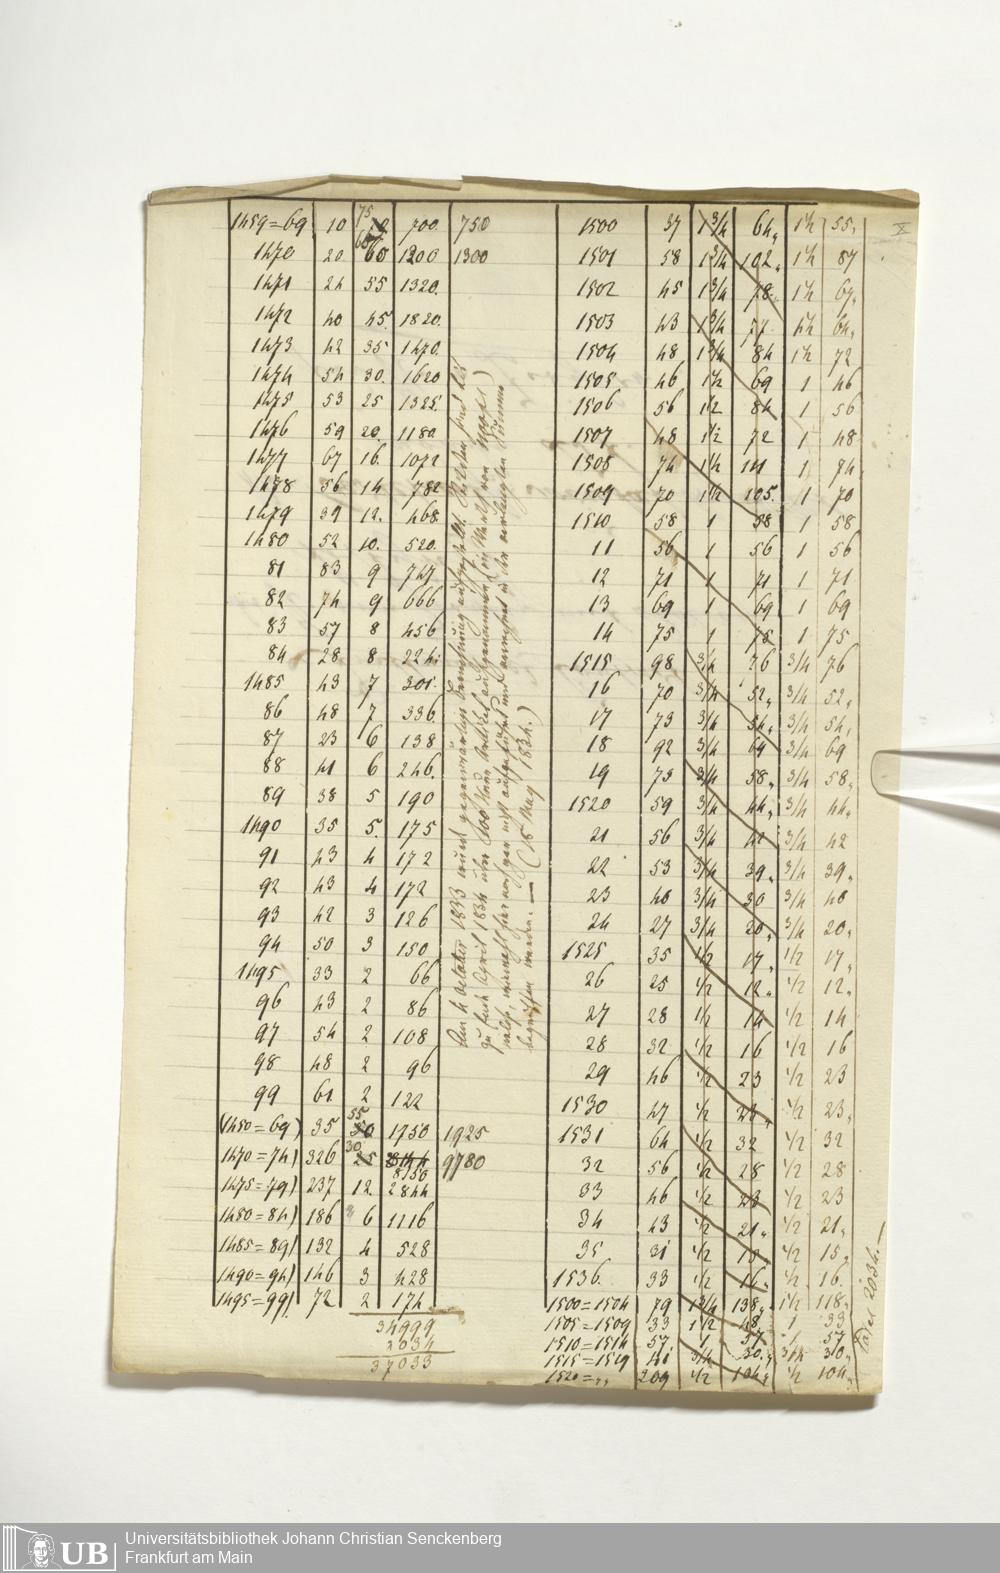 1459=69 10 75 70 700. 750
1470 20 65 60 1200 1300
1471 24 55 1320.
1472 40 45. 1820.
1473 42 35 1470.
1474 54 30. 1620
1475 53 25 1325.
1476 59 20. 1180.
1477 67 16. 1072
1478 56 14 782
1479 39 12. 468
1480 52 10. 520.
81 83 9 747
82 74 9 666
83 57 8 456
84 28 8 224.
1485 43 7 301.
86 48 7 336
87 23 6 138
88 41 6 246.
89 38 5 190
1490 35 5. 175
91 43 4 172
92 43 4 172
93 42 3 126
94 50 3 150
1495 33 2 66
96 43 2 86
97 54 2 108
98 48 2 96
99 61 2 122
(1450=69) 35 55 50 1750 1925
1470=74) 326 30 25 8150 9780
1475=79) 237 12 2844
1480=84) 186 6 1116
1485=89) 132 4 528
1490=94) 146 3 428
1495=99) 72 2 174
34999
2034
37033
den 4 October 1833 wurde gegenwärtige
zu Ende April 1834 aufgenommen im Werth von
(15 May 1834.)
1500 37 1 3/4 64, 1 1/2 55,
1501 58 1 3/4 102, 1 1/2 87
1502 45 1 3/4 78 1 1/2 67,
1503 43 1 3/4 77 1 1/2 64,
1504 48 1 3/4 84 1 1/2 72
1505 46 1 1/2 69 1 46
1506 56 1 1/2 84 1 56
1507 48 1 1/2 72 1 48
1508 74 1 1/2 111 1 74
1509 70 1 1/2 105. 1 70
1510 58 1 58 1 58
11 56 1 56 1 56
12 71 1 71 1 71
13 69 1 69 1 69
14 75 1 75 1 75
1515 98 3/4 76 3/4 76
16 70 3/4 52, 3/4 52,
17 73 3/4 54, 3/4 54,
18 92 3/4 69 3/4 69
19 73 3/4 58, 3/4 58,
1520 59 3/4 44, 3/4 44,
21 56 3/4 42 3/4 42
22 53 3/4 39, 3/4 39,
23 40 3/4 30 3/4 40
24 27 3/4 20, 3/4 20,
1525 35 1/2 17, 1/2 17,
26 25 1/2 12, 1/2 12,
27 28 1/2 14 1/2 14
28 32 1/2 16 1/2 16
29 46 1/2 23 1/2 23
1530 47 1/2 23, 1/2 23,
1531 64 1/2 32 1/2 32
32 56 1/2 28 1/2 28
33 46 1/2 23 1/2 23
34 43 1/2 21, 1/2 21,
35 31 1/2 15, 1/2 15,
1536. 33 1/2 16, 1/2 16.
1500=1504 79 1 3/4 138, 1 1/2 118,
1505=1509 33 1 1/2 48, 1 33
1510=1514 57. 1 57 1 57
1515=1519 41 3/4 30, 3/4 30,
1520=,, 209 1/2 104, 1/2 104,
2034.
X
Universitätsbibliothek Johann Christian Senckenberg
Frankfurt am Main
UB